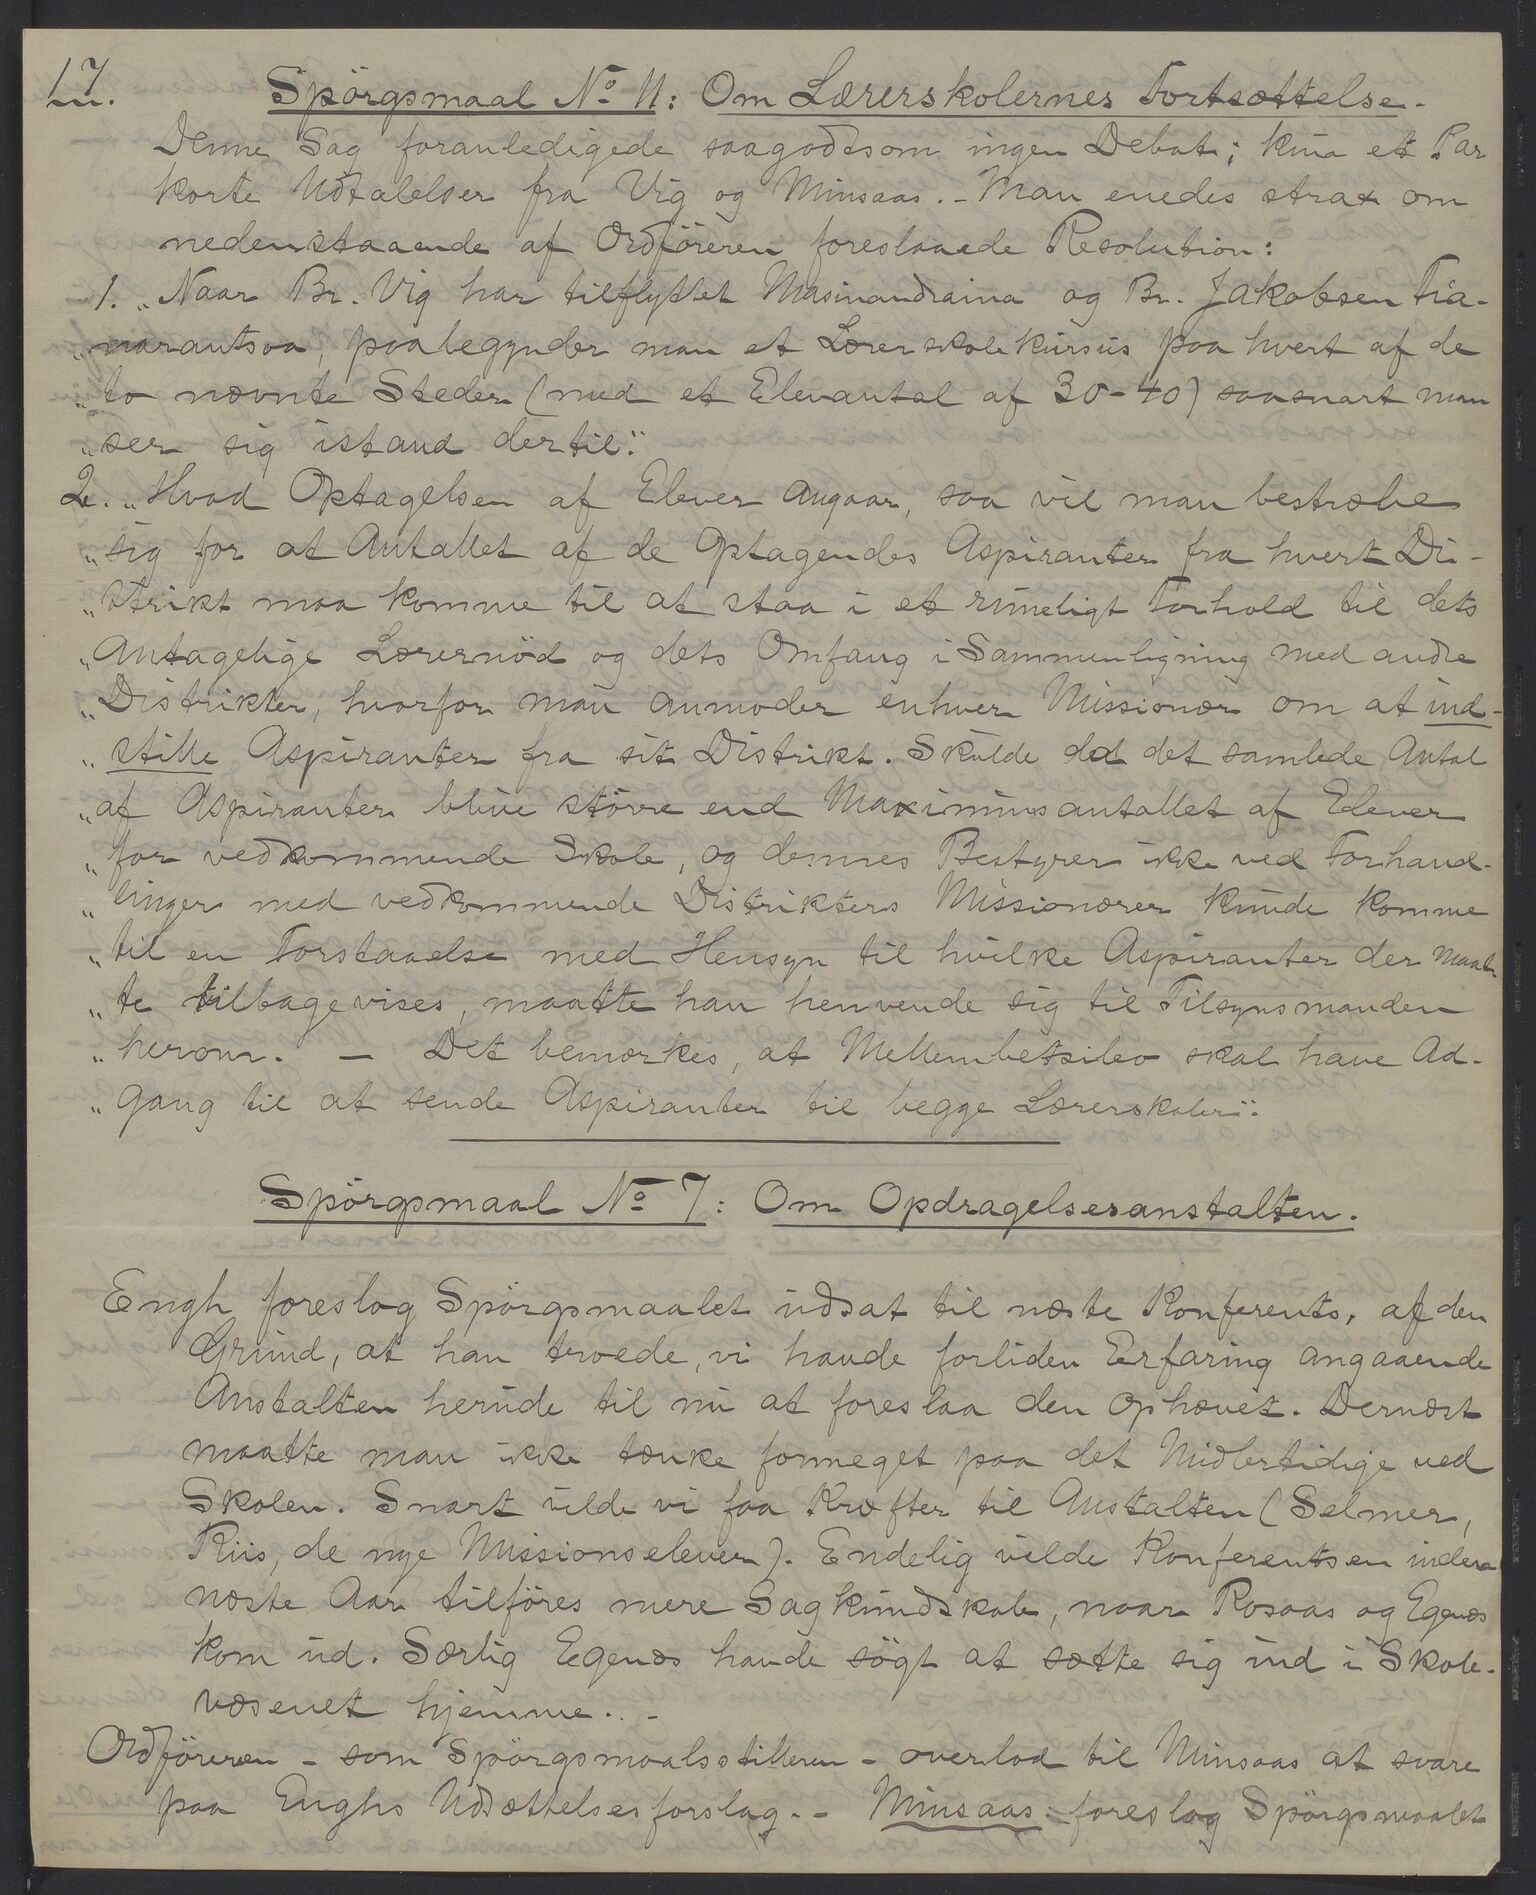 17.
Spörgsmaal No 11: Om Lærerskolernes Fortsættelse.
Denne Sag foranledigede saagodtsom ingen Debat; kun et Par
korte Udtalelser fra Vig og Minsaas. - Man enedes strax om
nedenstaaende af Ordföreren foreslaaede Resolution:
1. „Naar Br. Vig har tilflyttet Masinandraina og Br. Jakobsen Fia-
„narantsoa, paabegynder man et Lærerskolekursus paa hvert af de
„to nævnte Steder (med et Elevantal af 30-40) saasnart man
„ser sig istand dertil“.
2. „Hvad Optagelsen af Elever angaar, saa vil man bestræbe
„sig for at Antallet af de Optagendes Aspiranter fra hvert Di-
„strikt maa komme til at staa i et rimeligt Forhold til dets
„antagelige Lærernöd og dets Omfang i Sammenligning med andre
„Distrikter, hvorfor man anmoder enhver Missionær om at ind-
„stille Aspiranter fra sit Distrikt. Skulde det samlede Antal
„af Aspiranter blive större end Maximumsantallet af Elever
„for vedkommende Skole, og dennes Bestyrer ikke ved Forhand-
„linger med vedkommende Distrikters Missionærer kunde komme
„til en Forstaaelse med Hensyn til hvilke Aspiranter der maat-
„te tilbagevises, maatte han henvende sig til Tilsynsmanden
„herom. — Det bemærkes, at Mellembetsileo skal have Ad-
„gang til at sende Aspiranter til begge Lærerskoler“.
Spörgsmaal No 7: Om Opdragelsesanstalten.
Engh foreslog Spörgsmaalet udsat til næste Konferents, af den
Grund, at han troede, vi havde forliden Erfaring angaaende
Anstalten herude til nu at foreslaa den ophævet. Dernæst
maatte man ikke tænke formeget paa det Midlertidige ved
Skolen. Snart vilde vi faa Kræfter til Anstalten (Selmer,
Riis, de nye Missionselever). Endelig vilde Konferentsen inden
næste Aar tilföres mere Sagkundskab, naar Rosaas og Egenæs
kom ud. Særlig Egenæs havde sögt at sætte sig ind i Skole-
væsenet hjemme. -
Ordföreren - som Spörgsmaalsstilleren - overlod til Minsaas at svare
paa Enghs Udsættelsesforslag. - Minsaas foreslog Spörgsmaalet